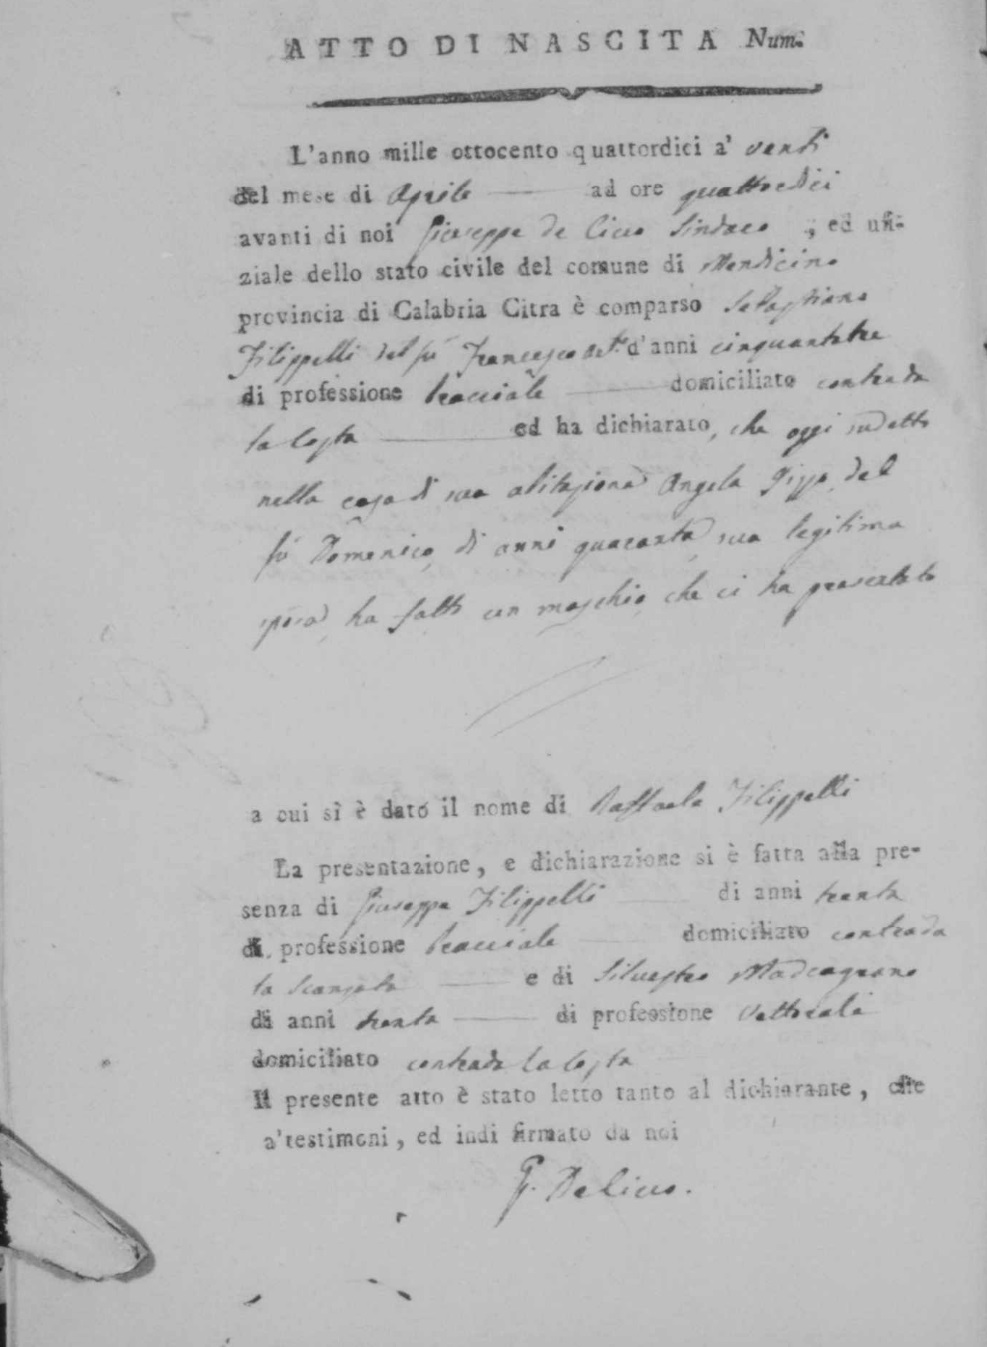 ATTO DI NASCITA Num.
L'anno mille ottocento quattordici a' venti
del mese di Aprile ad ore quattordici
avanti di noi Giuseppe de Cicco Sindaco , ed uffi-
ziale dello stato civile del comune di Mendicino
provincia di Calabria Citra è comparso Sebastiano
Filippelli del fù Francesco d'anni cinquantatre
di professione bracciale domiciliato contrada
la Costa ed ha dichiarato, che oggi sudetto
nella casa di sua abitazione Angela del
fù Domenico, di anni quaranta sua legitima
sposa, ha fatto un maschio, che ci ha presentato
a cui si è dato il nome di Raffaele Filippelli
La presentazione, e dichiarazione si è fatta alla pre-
senza di Giuseppe Filippelli di anni trenta
di professione bracciale domiciliato contrada
la e di Silvestro
di anni trenta di professione Vatticale
domiciliato contrada la Costa
Il presente atto è stato letto tanto al dichiarante, che
a' testimoni, ed indi firmato da noi
G. De Cicco.